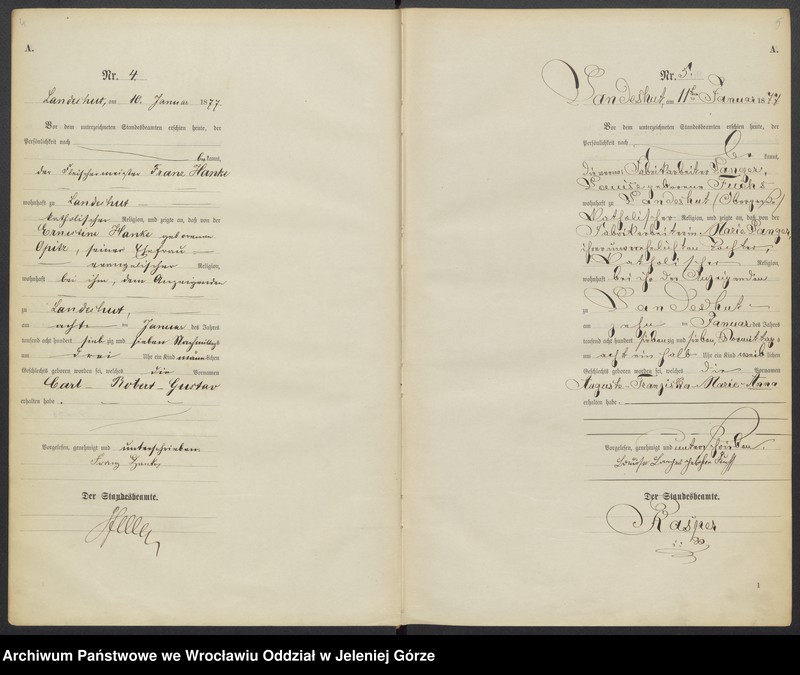 4
A.
Nr. 4.
Landeshut, am 10. Januar 1877.
Vor dem unterzeichneten Standesbeamten erschien heute, der
Persönlichkeit nach
bekannt,
der Fleischermeister Franz Hanke
wohnhaft zu Landeshut
katholischer Religion, und zeigte an, daß von der
Ernestine Hanke geborenen
Opitz, seiner Ehefrau
evangelischer Religion,
wohnhaft bei ihm, dem Anzeigenden
zu Landeshut,
am acht ten Januar des Jahres
tausend acht hundert siebzig und sieben Nachmittags
um drei Uhr ein Kind männlichen
Geschlechts geboren worden sei, welches die Vornamen
Carl Robert Gustav
erhalten habe.
Vorgelesen, genehmigt und unterschrieben.
Franz Hanke
Der Standesbeamte.
5
A.
Nr. 5.
Landeshut, am 11ten Januar 1877
Vor dem unterzeichneten Standesbeamten erschien heute, der
Persönlichkeit nach
kannt,
Fabrikarbeiter
Louise geborene Fuchs
wohnhaft zu Landeshut
katholischer Religion, und zeigte an, daß von der
Fabrikarbeiterin Marie
ihrer unverehelichten Tochter,
katholischer Religion,
wohnhaft bei ihr der Anzeigenden
zu Landeshut
am zehn ten Januar des Jahres
tausend acht hundert siebenzig und sieben, Vormittags
um acht ein halb Uhr ein Kind weiblichen
Geschlechts geboren worden sei, welches die Vornamen
Auguste Franziska Marie Anna
erhalten habe.
Vorgelesen, genehmigt und unterschrieben.
Der Standesbeamte.
Kasper
1
Archiwum Państwowe we Wrocławiu Oddział w Jeleniej Górze